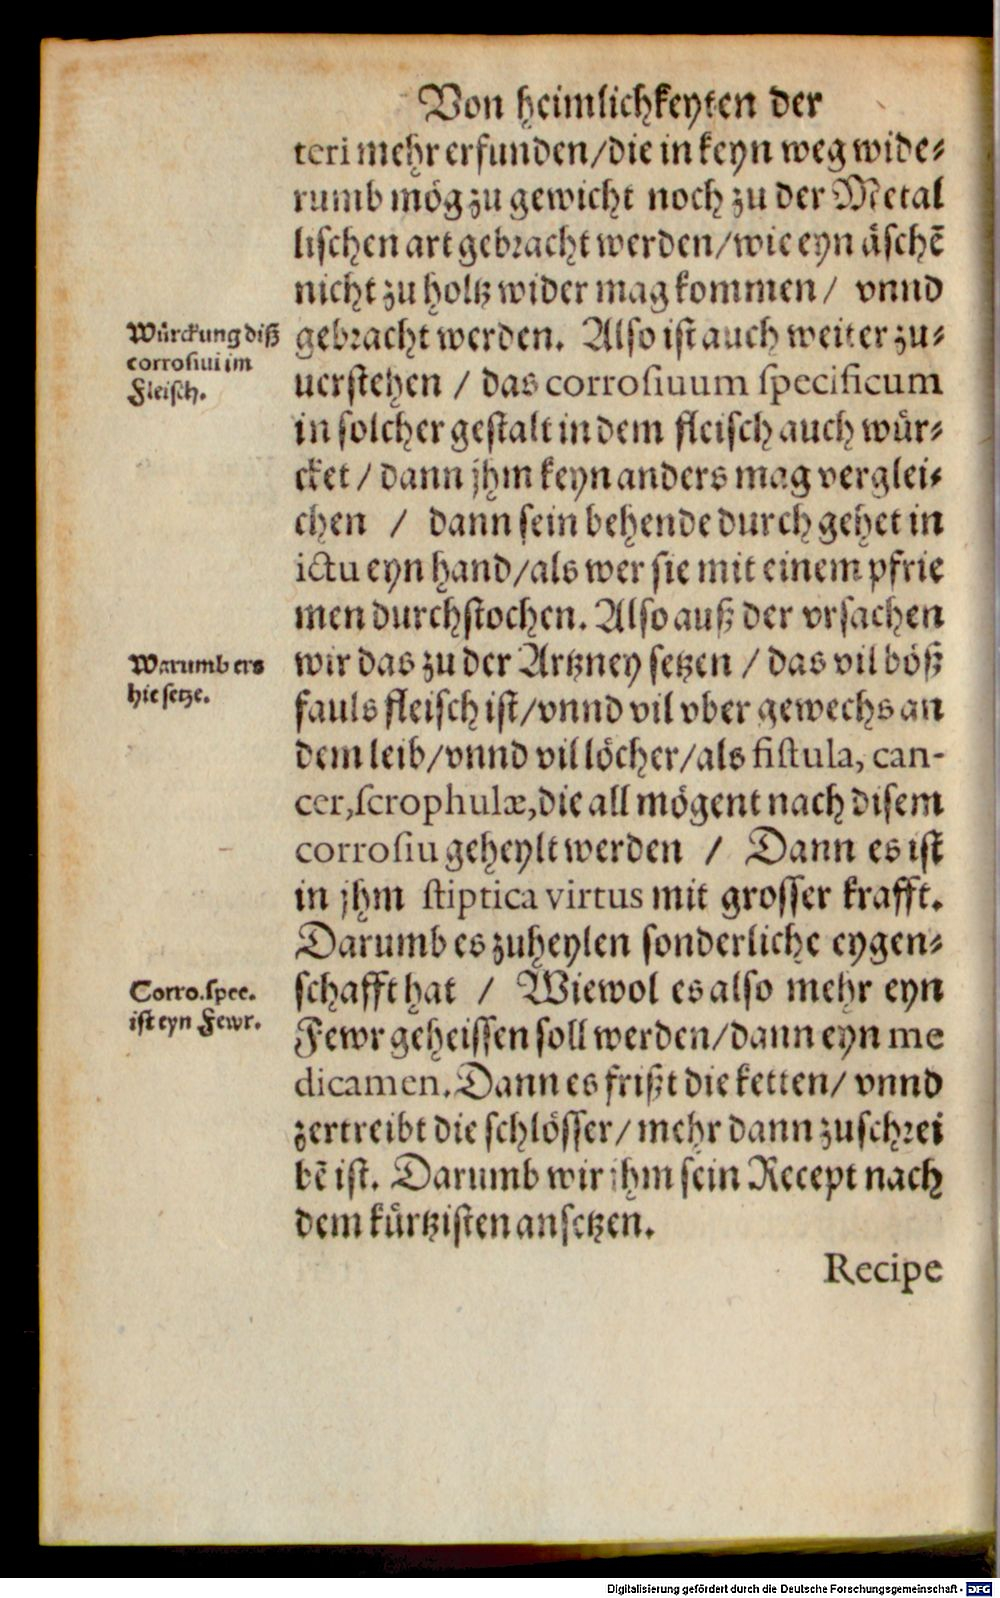 Von heimlichkeyten der
teri mehr erfunden/die in keyn weg wide⸗
rumb mög zu gewicht noch zu der Metal
lischen art gebracht werden/wie eyn äschē
nicht zu holtz wider mag kommen/ vnnd
Würckung diß
corrosiui im
Fleisch.
gebracht werden. Also ist auch weiter zu⸗
uerstehen / das corrosiuum specificum
in solcher gestalt in dem fleisch auch wür⸗
cket / dann jhm keyn anders mag verglei⸗
chen / dann sein behende durch gehet in
ictu eyn hand/als wer sie mit einem pfrie
men durchstochen. Also auß der vrsachen
Warumb ers
hie setze.
wir das zu der Artzney setzen / das vil böß
fauls fleisch ist/vnnd vil vber gewechs an
dem leib/vnnd vil löcher/als fistula, can-
cer,scrophulæ,die all mögent nach disem
corrosiu geheylt werden / Dann es ist
in jhm stiptica virtus mit grosser krafft.
Darumb es zuheylen sonderliche eygen⸗
Corro.spec.
ist eyn Fewr.
schafft hat / Wiewol es also mehr eyn
Fewr geheissen soll werden/dann eyn me
dicamen. Dann es frißt die ketten/ vnnd
zertreibt die schlösser/mehr dann zuschrei
bē ist. Darumb wir jhm sein Recept nach
dem kürtzisten ansetzen.
Recipe
Digitalisierung gefördert durch die Deutsche Forschungsgemeinschaft - DFG